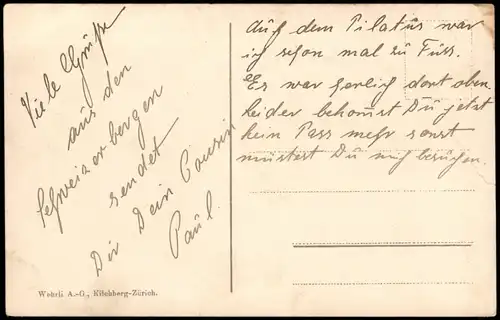 Viele Grüße
aus den
Schweizerbergen
sendet
Dir Dein Cousin
Paul.
Auf dem Pilatus war
ich schon mal zu Fuss.
Es war herlich dort oben
leider bekomst Du jetzt
kein Pass mehr sonst
müstest Du mich besuchen.
Wehrli A.-G., Kilchberg-Zürich.